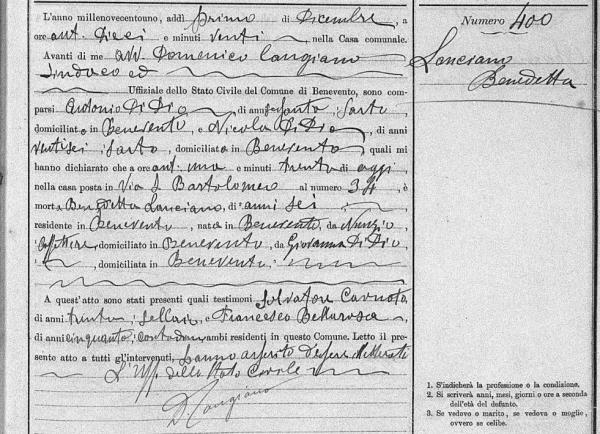 L'anno millenovecentouno, addì primo di Dicembre, a
ore ant. Dieci e minuti venti, nella Casa comunale.
Avanti di me avv. Domenico Cangiano
Sindaco ed
Uffiziale dello Stato Civile del Comune di Benevento, sono com-
parsi Antonio Di Dio, di anni, Sarto
domiciliato in Benevento, e Nicola Di Dio, di anni
ventisei Sarto, domiciliato in Benevento, quali mi
hanno dichiarato che a ore ant. una e minuti trenta di oggi
nella casa posta in Via S. Bartolomeo al numero 34, è
morta Benedetta Lanciano, di anni sei
residente in Benevento, nata in Benevento, da Nunzio,
Caffettiere, domiciliato in Benevento, da Giovanna Di Dio,
, domiciliata in Benevento
A quest'atto sono stati presenti quali testimoni Salvatore
di anni trenta, sellaio, e Francesco Bellarosa
di anni cinquanta, contadino ambi residenti in questo Comune. Letto il pre-
sente atto a tutti gl'intervenuti, hanno asserito d'essere illetterati
L'Uff. dello Stato Civile
D. Cangiano
Numero 400
Lanciano
Benedetta
1. S'indicherà la professione o la condizione.
2. Si scriverà anni, mesi, giorni o ore a seconda
dell'età del defunto.
3. Se vedovo o marito, se vedova o moglie,
ovvero se celibe.